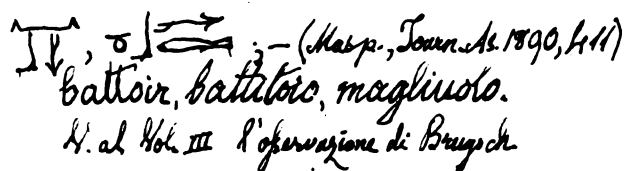 , ; — (Masp., Journ. As. 1890, 411)
battoir, battitoio, magliuolo.
V. al Vol. III l'osservazione di Brugsch